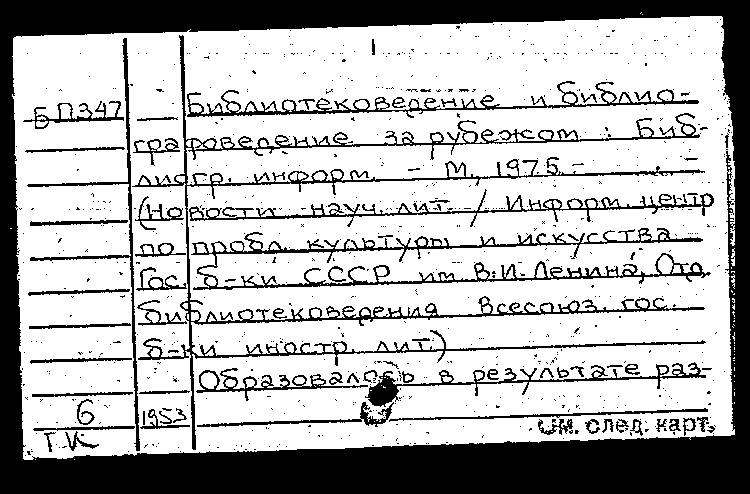 1
БП347 Библиотековедение и библио-
графоведение за рубежом : Биб-
лиогр. информ. - М., 1975 -     . -
(Новости науч. лит. / Информ. центр
по пробл. культуры и искусства
Гос. б-ки СССР им В.И. Ленина, Отд.
библиотековедения Всесоюз. гос.
б-ки иностр. лит.)
Образовалось в результате раз-
6 1953
Т.К
См. след. карт.